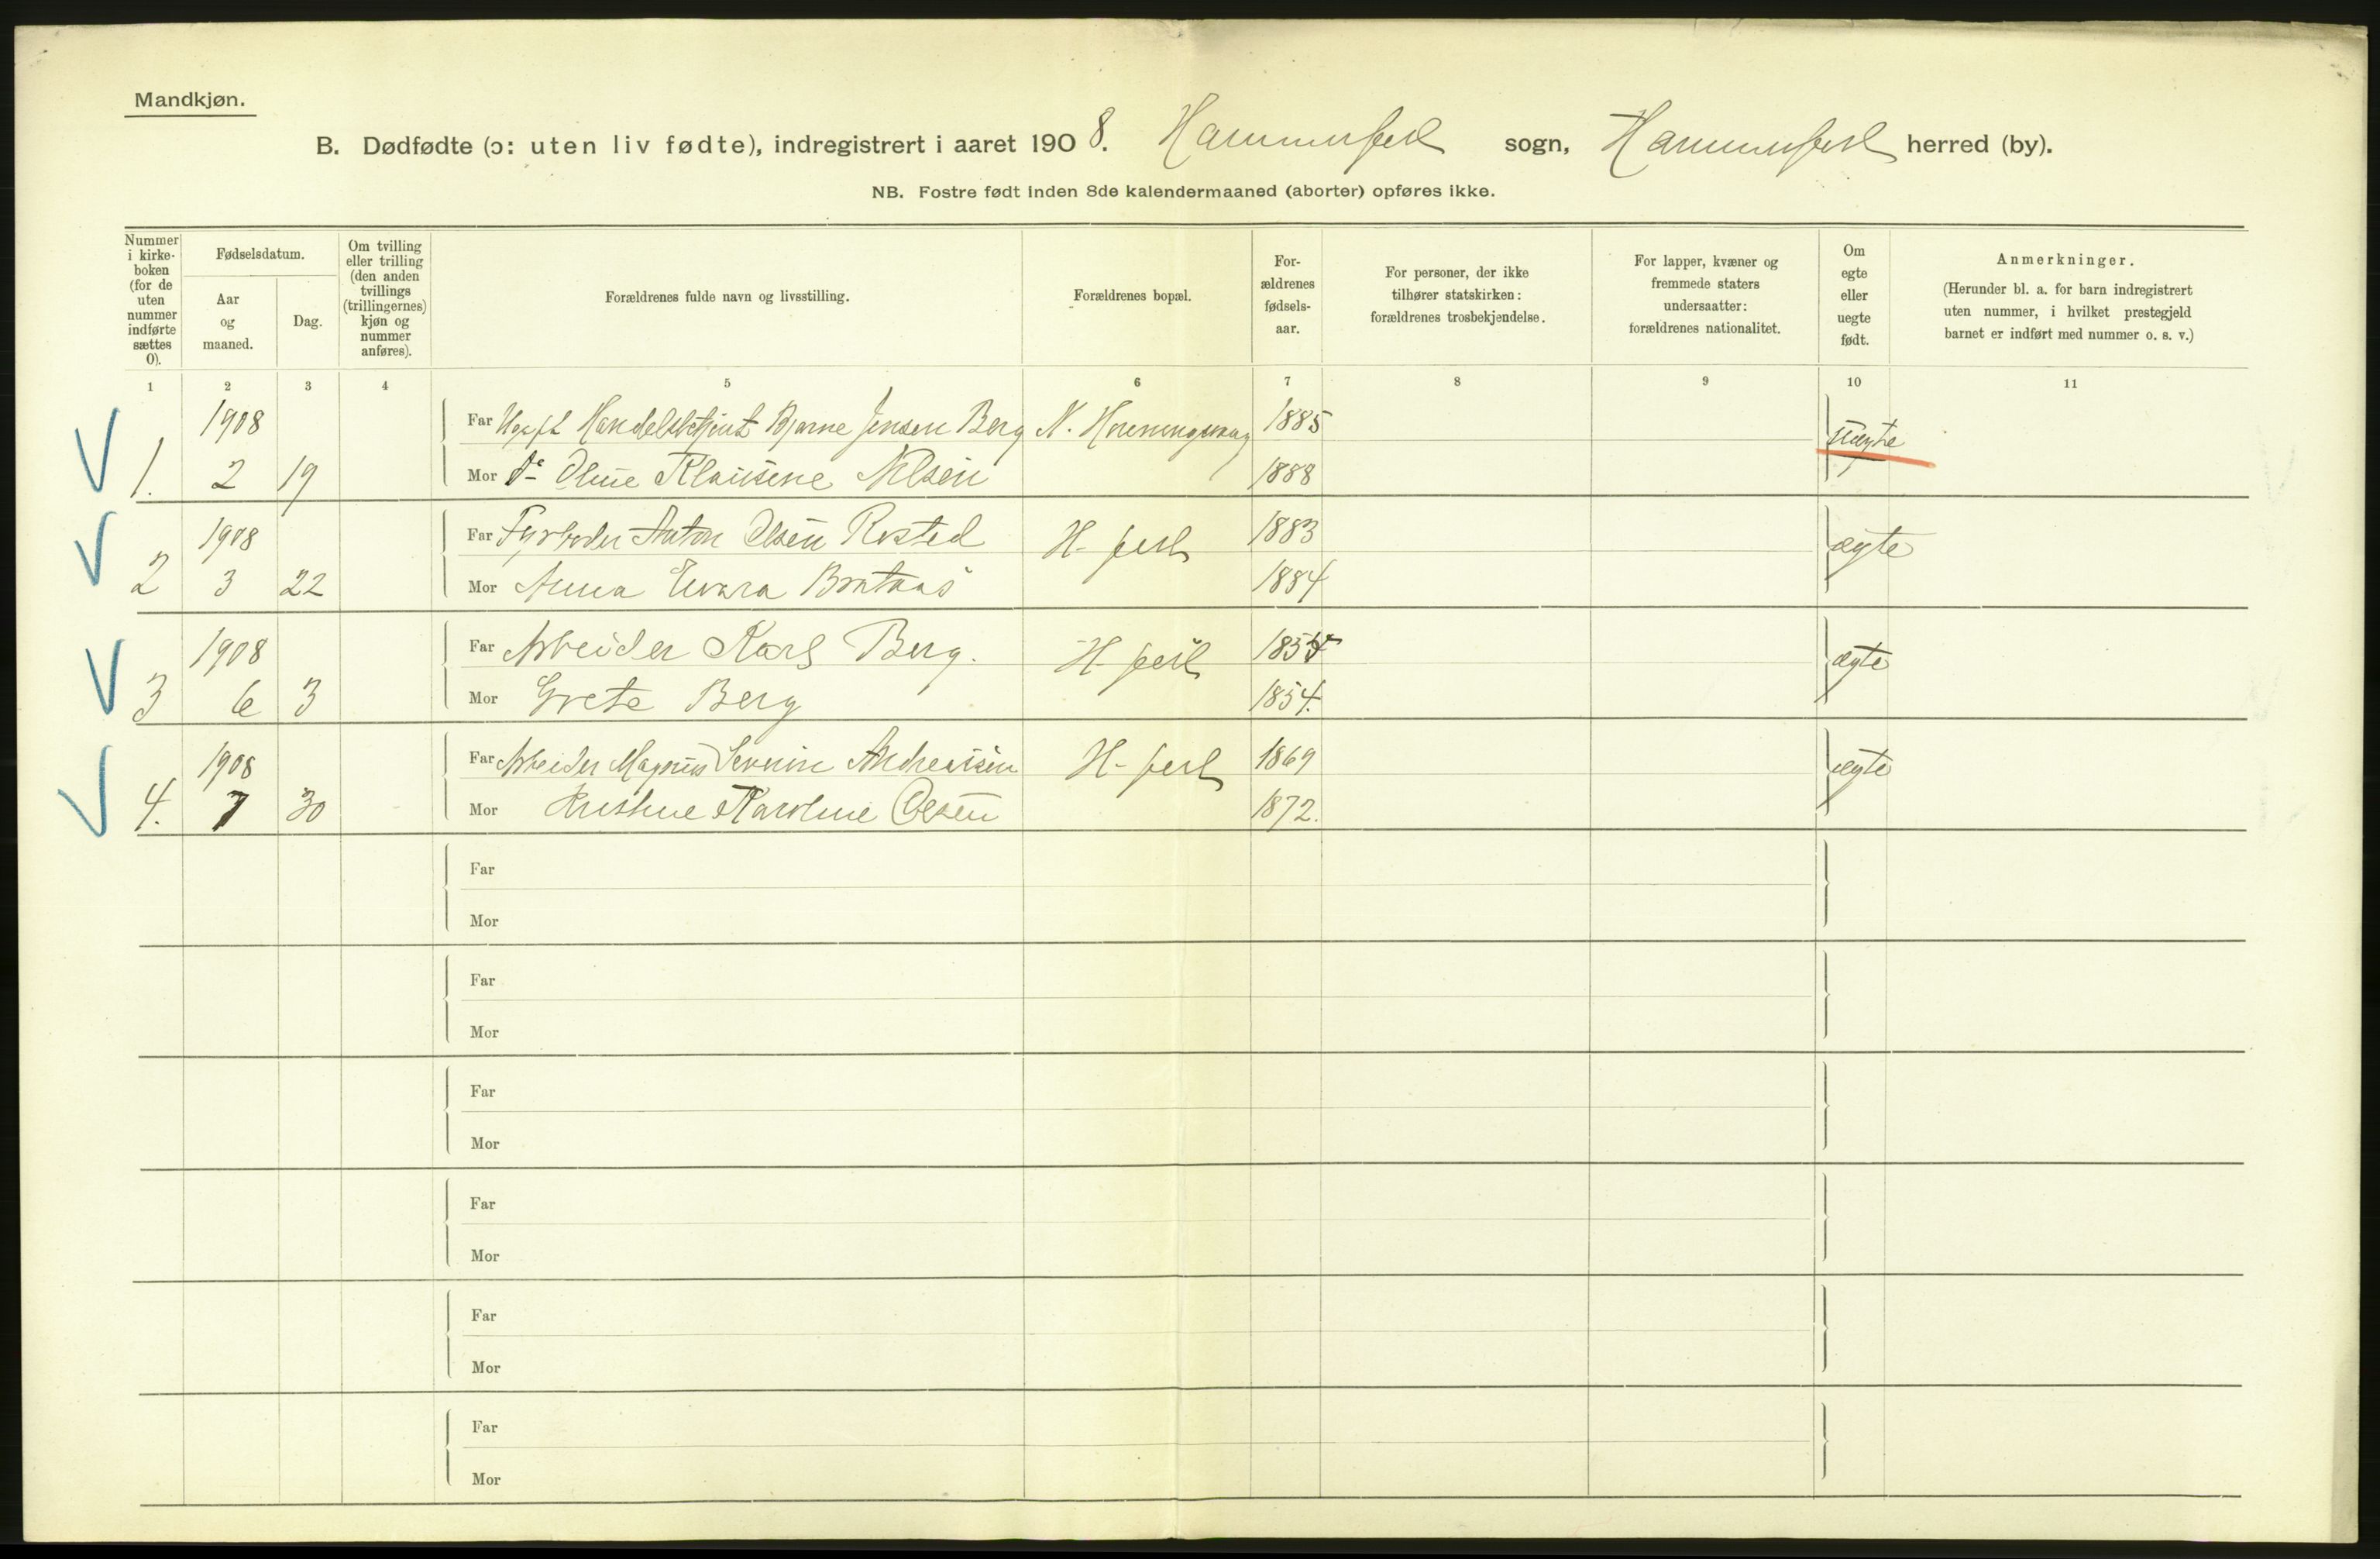 Mandkjøn.
B. Dødfødte (ɔ: uten liv fødte), indregistrert i aaret 1908. Hammerfest sogn, Hammerfest herred (by).
NB. Fostre født inden 8de kalendermaaned (aborter) opføres ikke.
Nummer i kirke-boken (for de uten nummer indførte sættes 0).
Fødselsdatum.
Aar og maaned.
Dag.
Om tvilling eller trilling (den anden tvillings (trillingernes) kjøn og nummer anføres).
Forældrenes fulde navn og livsstilling.
Forældrenes bopæl.
For-ældrenes fødsels-aar.
For personer, der ikke tilhører statskirken: forældrenes trosbekjendelse.
For lapper, kvæner og fremmede staters undersaatter: forældrenes nationalitet.
Om egte eller uegte født.
Anmerkninger.
(Herunder bl. a. for barn indregistrert uten nummer, i hvilket prestegjeld barnet er indført med nummer o. s. v.)
1 2 3 4 5 6 7 8 9 10 11
1. 1908 2 19
Far Handelsbetjent Bjarne Jensen Berg N. Honningsvaag 1885 uægte
Mor do Oline Klausine Nilsen 1888
2 1908 3 22
Far Fyrbøder Anton Olsen Rosted H-fest 1883 ægte
Mor Anna Evara Brataas 1884
3 1908 6 3
Far Arbeider Karl Berg. H-fest 1854 ægte
Mor Grete Berg 1854.
4. 1908 7 30
Far Arbeider Magnus Severin Andreassen H-fest 1869 ægte
Mor Kristine Karoline Olsen 1872.
Far
Mor
Far
Mor
Far
Mor
Far
Mor
Far
Mor
Far
Mor